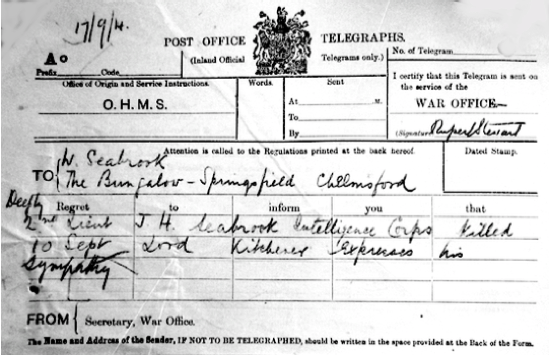 17/9/14.
POST OFFICE TELEGRAPHS.
(Inland Official Telegrams only.)
No. of Telegram
A o
Prefix Code
Office of Origin and Service Instructions.
O.H.M.S.
Words.
Sent
At M.
To
By
I certify that this Telegram is sent on
the service of the
WAR OFFICE
(Signature) Rupert Stewart
Attention is called to the Regulations printed at the back hereof.
Dated Stamp.
TO W. Seabrook
The Bungalow - Springfield Chelmsford
Deeply Regret to inform you that
2nd Lieut J. H. Seabrook Intelligence Corps killed
10 Sept Lord Kitchener Expresses his
Sympathy
FROM Secretary, War Office.
The Name and Address of the Sender, IF NOT TO BE TELEGRAPHED, should be written in the space provided at the Back of the Form.